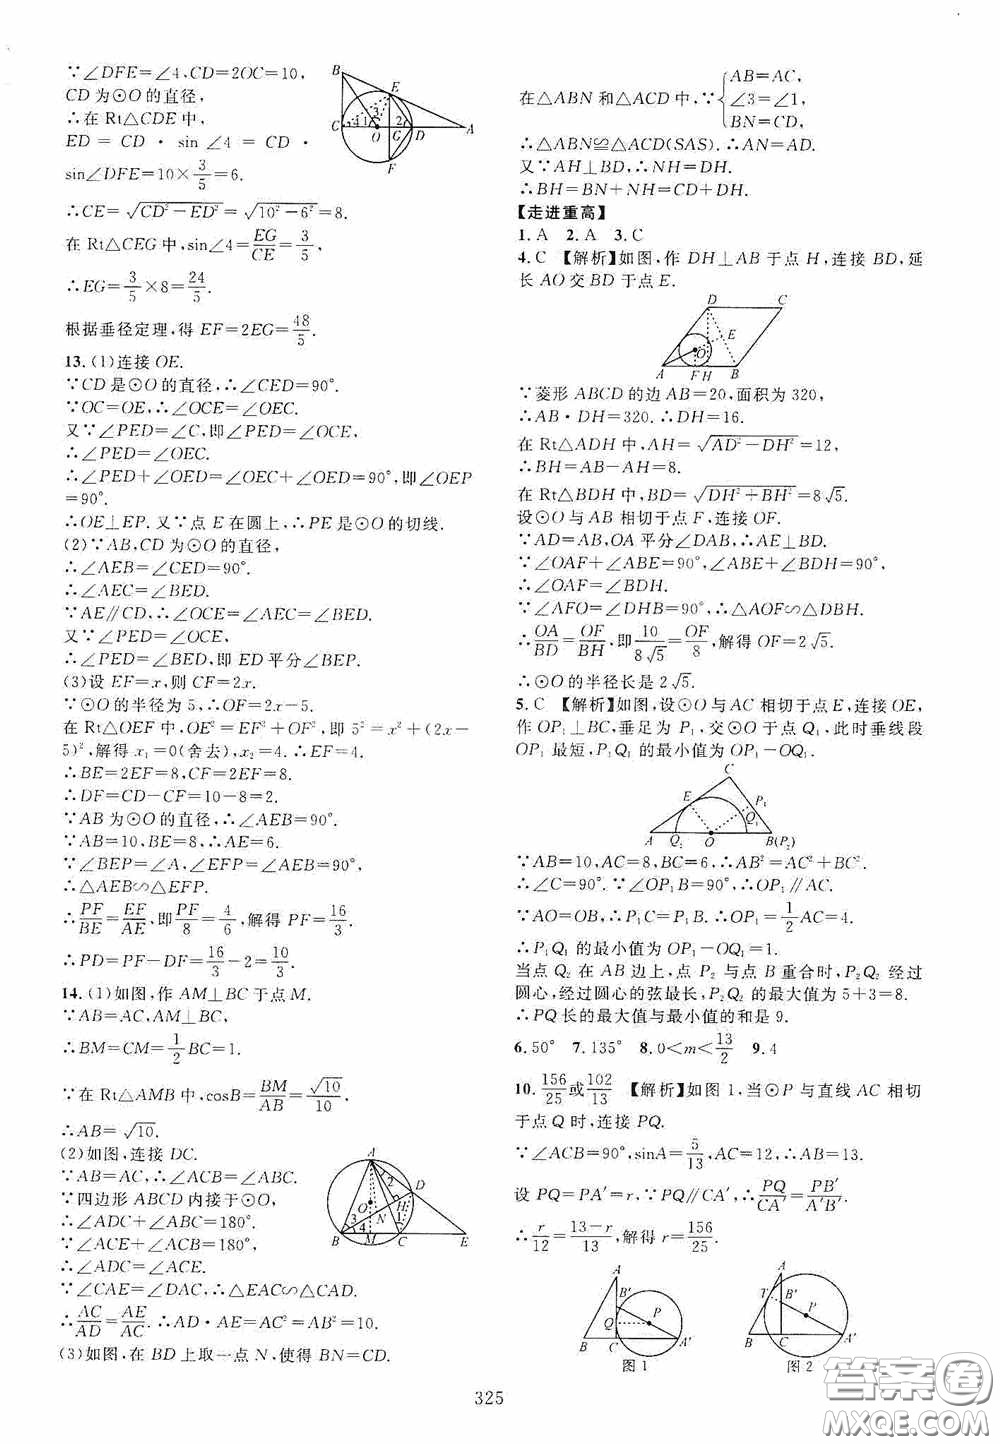 ∵∠DFE=∠4,CD=2OC=10,
CD为⊙O的直径,
∴在Rt△CDE中,
ED = CD · sin ∠4 = CD ·
sin∠DFE=10×3/5=6.
∴CE=√(CD²−ED²)=√(10²−6²)=8.
在Rt△CEG中,sin∠4=EG/CE=3/5,
∴EG=3/5×8=24/5.
根据垂径定理,得EF=2EG=48/5.
13.(1)连接OE.
∵CD是⊙O的直径,∴∠CED=90°.
∵OC=OE,∴∠OCE=∠OEC.
又∵∠PED=∠C,即∠PED=∠OCE,
∴∠PED=∠OEC.
∴∠PED+∠OED=∠OEC+∠OED=90°,即∠OEP
=90°.
∴OE⊥EP.又∵点E在圆上,∴PE是⊙O的切线.
(2)∵AB,CD为⊙O的直径,
∴∠AEB=∠CED=90°.
∴∠AEC=∠BED.
∵AE∥CD,∴∠OCE=∠AEC=∠BED.
又∵∠PED=∠OCE,
∴∠PED=∠BED,即ED平分∠BEP.
(3)设EF=x,则CF=2x.
∵⊙O的半径为5,∴OF=2x−5.
在Rt△OEF中,OE²=EF²+OF²,即5²=x²+(2x−
5)²,解得x₁=0(舍去),x₂=4.∴EF=4.
∴BE=2EF=8,CF=2EF=8.
∴DF=CD−CF=10−8=2.
∵AB为⊙O的直径,∴∠AEB=90°.
∵AB=10,BE=8,∴AE=6.
∵∠BEP=∠A,∠EFP=∠AEB=90°,
∴△AEB∽△EFP.
∴PF/BE=EF/AE,即PF/8=4/6,解得PF=16/3.
∴PD=PF−DF=16/3−2=10/3.
14.(1)如图,作AM⊥BC于点M.
∵AB=AC,AM⊥BC,
∴BM=CM=1/2BC=1.
∵在Rt△AMB中,cosB=BM/AB=√10/10.
∴AB=√10.
(2)如图,连接DC.
∵AB=AC,∴∠ACB=∠ABC.
∵四边形ABCD内接于⊙O,
∴∠ADC+∠ABC=180°.
∵∠ACE+∠ACB=180°,
∴∠ADC=∠ACE.
∵∠CAE=∠DAC,∴△EAC∽△CAD.
∴AC/AD=AE/AC.∴AD·AE=AC²=AB²=10.
(3)如图,在BD上取一点N,使得BN=CD.
B
E
C
4
1
3
2
O
G
D
A
F
A
2
D
1
O
H
3
4
N
B
M
C
E
在△ABN和△ACD中,∵{AB=AC,
∠3=∠1,
BN=CD,
∴△ABN≌△ACD(SAS).∴AN=AD.
又∵AH⊥BD,∴NH=DH.
∴BH=BN+NH=CD+DH.
【走进重高】
1.A 2.A 3.C
4.C 【解析】如图,作DH⊥AB于点H,连接BD,延
长AO交BD于点E.
D
C
E
O
A
F
H
B
∵菱形ABCD的边AB=20,面积为320,
∴AB·DH=320.∴DH=16.
在Rt△ADH中,AH=√(AD²−DH²)=12,
∴BH=AB−AH=8.
在Rt△BDH中,BD=√(DH²+BH²)=8√5.
设⊙O与AB相切于点F,连接OF.
∵AD=AB,OA平分∠DAB,∴AE⊥BD.
∵∠OAF+∠ABE=90°,∠ABE+∠BDH=90°,
∴∠OAF=∠BDH.
∵∠AFO=∠DHB=90°,∴△AOF∽△DBH.
∴OA/BD=OF/BH,即10/8√5=OF/8,解得OF=2√5.
∴⊙O的半径长是2√5.
5.C 【解析】如图,设⊙O与AC相切于点E,连接OE,
作OP₁⊥BC,垂足为P₁,交⊙O于点Q₁,此时垂线段
OP₁最短,P₁Q₁的最小值为OP₁−OQ₁.
C
E
P₁
Q₁
A
Q₂
O
B(P₂)
∵AB=10,AC=8,BC=6,∴AB²=AC²+BC².
∴∠C=90°.∵∠OP₁B=90°,∴OP₁∥AC.
∵AO=OB,∴P₁C=P₁B.∴OP₁=1/2AC=4.
∴P₁Q₁的最小值为OP₁−OQ₁=1.
当点Q₂在AB边上,点P₂与点B重合时,P₂Q₂经过
圆心,经过圆心的弦最长,P₂Q₂的最大值为5+3=8.
∴PQ长的最大值与最小值的和是9.
6.50° 7.135° 8.0<m<13/2 9.4
10.156/25或102/13 【解析】如图1,当⊙P与直线AC相切
于点Q时,连接PQ.
∵∠ACB=90°,sinA=5/13,AC=12,∴AB=13.
设PQ=PA′=r,∵PQ∥CA′,∴PQ/CA′=PB′/A′B′.
∴r/12=(13−r)/13,解得r=156/25.
A
B′
Q
P
B
C
A′
图1
A
T
B′
P
B
C
A′
图2
325
答案圈
MXQE.COM